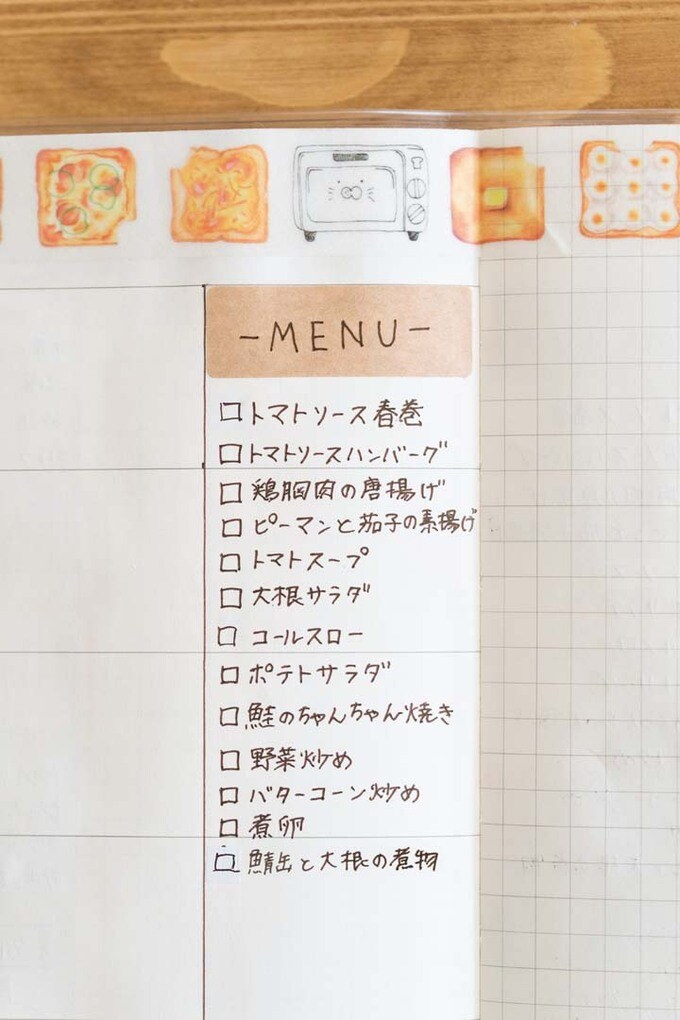 -MENU-
□トマトソース春巻
□トマトソースハンバーグ
□鶏胸肉の唐揚げ
□ピーマンと茄子の素揚げ
□トマトスープ
□大根サラダ
□コールスロー
□ポテトサラダ
□鮭のちゃんちゃん焼き
□野菜炒め
□バターコーン炒め
□煮卵
□鯖缶と大根の煮物